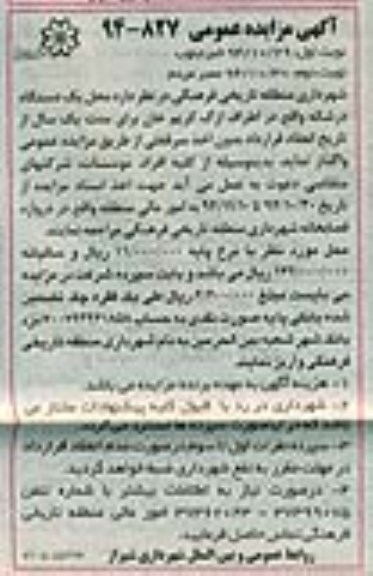 آگهی مزایده عمومی ۸۲۷-۹۴
نوبت اول: ۹۴/۱۰/۲۹
نوبت دوم: ۹۴/۱۰/۳۰ عصر مردم
شهرداری منطقه تاریخی فرهنگی در نظر دارد محل یک دستگاه
واقع در اطراف ارگ کریم خان برای مدت یک سال از
تاریخ انعقاد قرارداد بدون اخذ سرقفلی از طریق مزایده عمومی
واگذار نماید. بدینوسیله از کلیه افراد، موسسات، شرکتهای
متقاضی دعوت به عمل می آید جهت اخذ اسناد مزایده از
تاریخ به امور مالی منطقه واقع در دروازه
شهرداری منطقه تاریخی فرهنگی مراجعه نمایند.
محل مورد نظر با نرخ پایه ریال و سالیانه
ریال می باشد و بابت سپرده شرکت در مزایده
می بایست مبلغ ریال طی یک فقره چک تضمین
شده بانکی یا به صورت نقدی به حساب نزد
بانک شهر شعبه بین الحرمین به نام شهرداری منطقه تاریخی
فرهنگی واریز نمایند.
۱- هزینه آگهی به عهده برنده مزایده می باشد.
۲- شهرداری در رد یا قبول کلیه پیشنهادات مختار می
باشد که در اینصورت سپرده ها مسترد می گردد.
۳- سپرده نفرات اول تا سوم در صورت عدم انعقاد قرارداد
در مهلت مقرر به نفع شهرداری ضبط خواهد گردید.
۴- در صورت نیاز به اطلاعات بیشتر با شماره تلفن
امور مالی منطقه تاریخی
فرهنگی تماس حاصل فرمایید.
روابط عمومی و بین الملل شهرداری شیراز